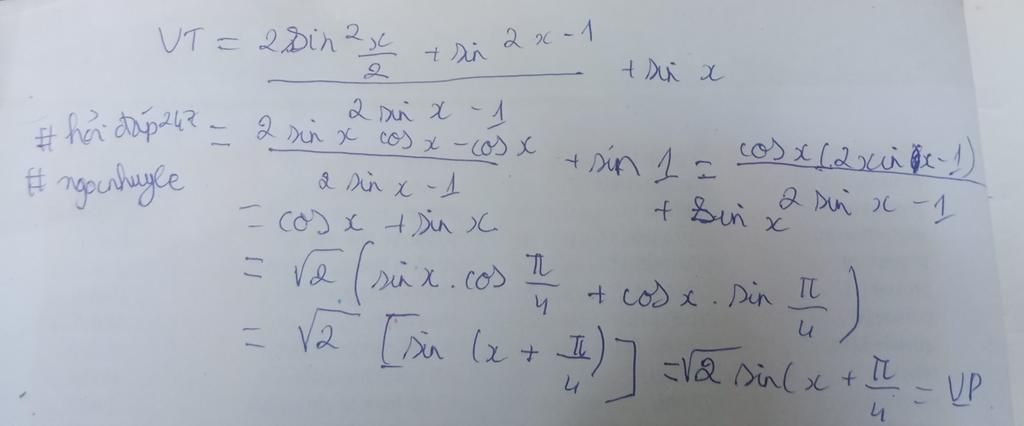 VT = (2sin²x/2 + sin 2x - 1)/(2 sin x - 1) + sin x
#hỏi đáp247 = (2 sin x cos x - cos x)/(2 sin x - 1) + sin 1 = (cos x (2xin x - 1))/(2 sin x - 1) + sin x
#ngocnhuyle
= cos x + sin x
= √2 (sin x . cos π/4 + cos x . sin π/4)
= √2 [sin (x + π/4)] = √2 sin(x + π/4 = VP